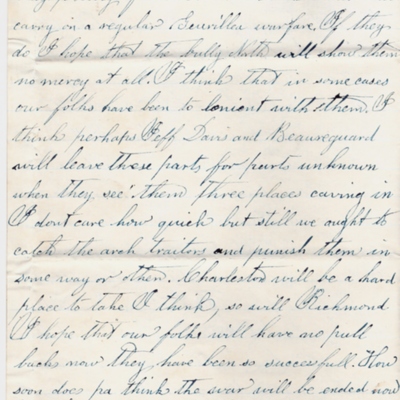 carry on a regular Geurilla warfare. If they
do I hope that the bully North will show them
no mercy at all. I think that in some cases
our folks have been to lenient with them. I
think perhaps Jeff Davis and Beaureguard
will leave these parts for parts unknown
when they see' them three places caving in
I dont care how quick but still we ought to
catch the arch traitors and punish them in
some way or other. Charleston will be a hard
place to take I think, so will Richmond
I hope that our folks will have no pull
backs now they have been so successfull. How
soon does pa think the war will be ended now